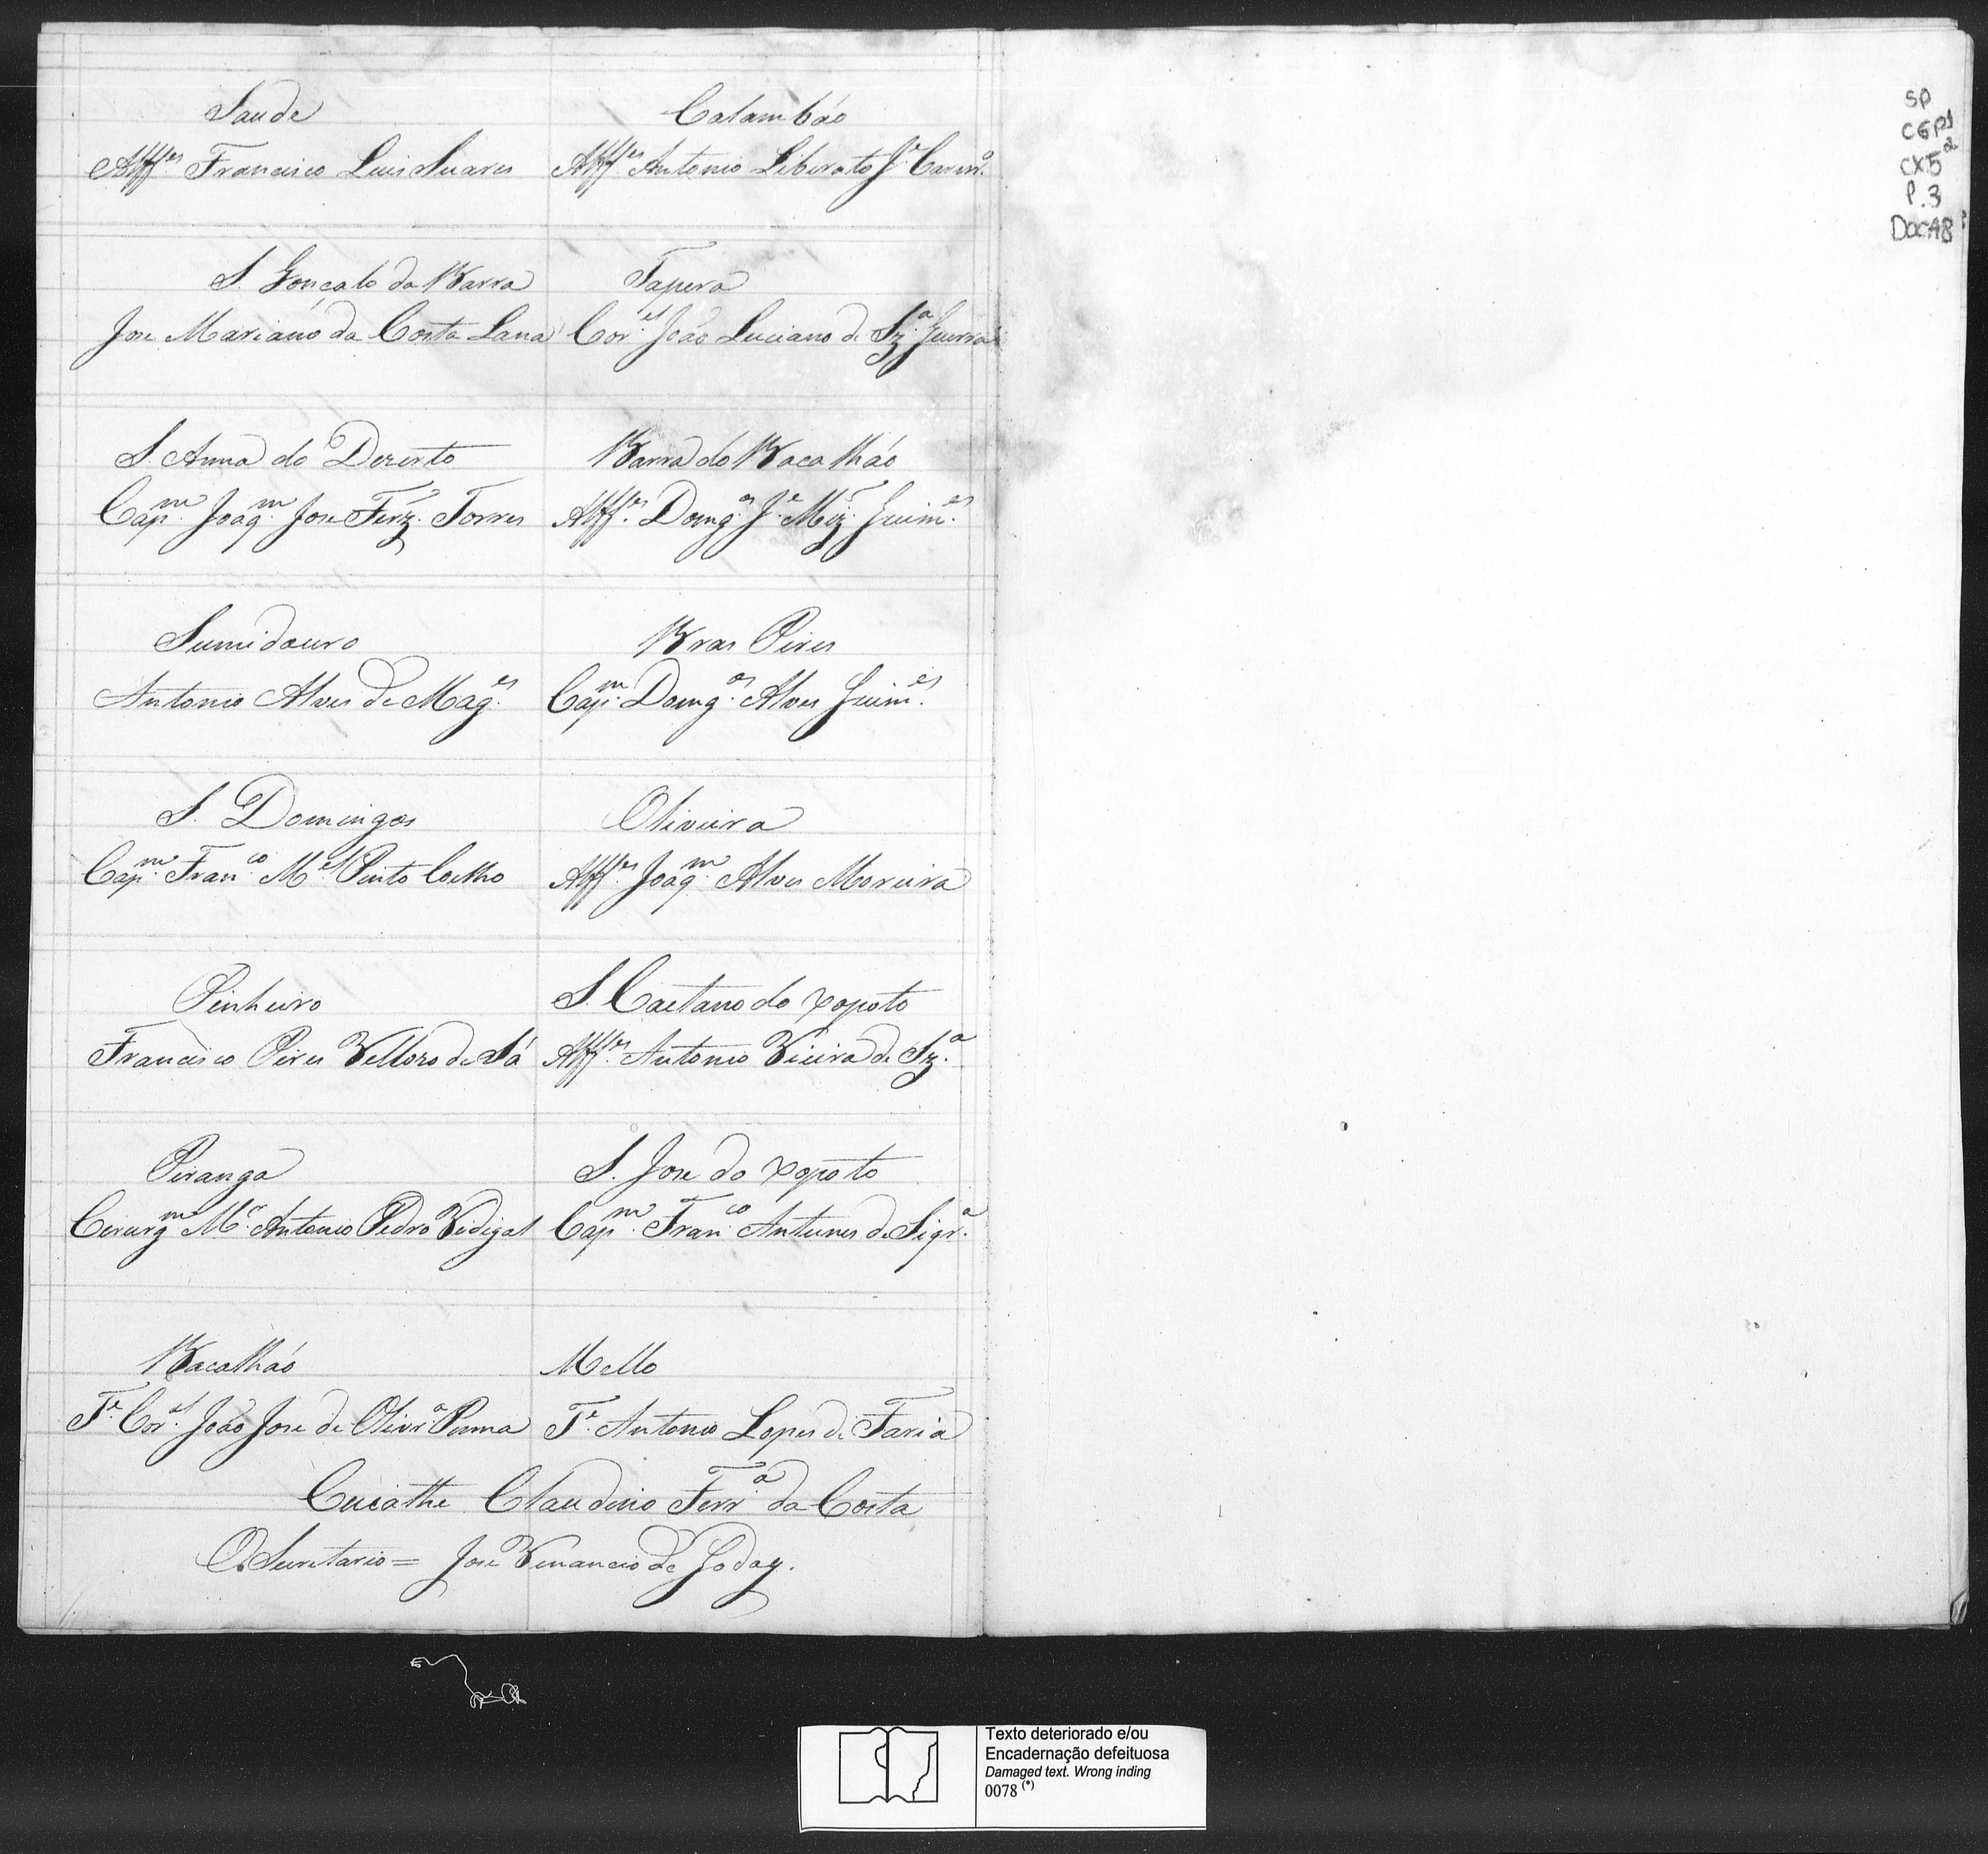 Saude
Alff.es Francisco Luis Suares
S. Gonçalo da Barra
Jose Mariano da Costa Lana
S. Anna do Dezerto
Cap.m Joaq.m Jose Ferz. Torres
Sumidouro
Antonio Alves de Mag.es
S. Domingos
Cap.m Fran.co M.el Pinto Coelho
Pinheiro
Francisco Pires Vellozo de Sá
Piranga
Cirurg.m M.r Antonio Pedro Vidigal
Bacalháo
T.e Cor.el João Jose de Olivr.a Penna
Calambáo
Alff.es Antonio Liberato J.e Carnr.o
Tapera
Cor.el João Luciano de Sz.a Guerra
Barra do Bacalháo
Alff.es Doming.os J.e Miz. Guim.es
Bras Pires
Cap.m Doming.os Alves Guim.es
Oliveira
Alff.es Joaq.m Alves Moreira
S. Caetano do Xopoto
Alff.es Antonio Vieira de Sz.a
S. Jose do Xopoto
Cap.m Fran.co Antunes de Siqr.a
Mello
T.e Antonio Lopes de Faria
Cuiathe Claudino Ferr.a da Costa
O Secretario = Jose Venancio de Godoy.
SP
CGP1
CX5
P.3
Doc48
Texto deteriorado e/ou
Encadernação defeituosa
Damaged text. Wrong inding
0078 (*)